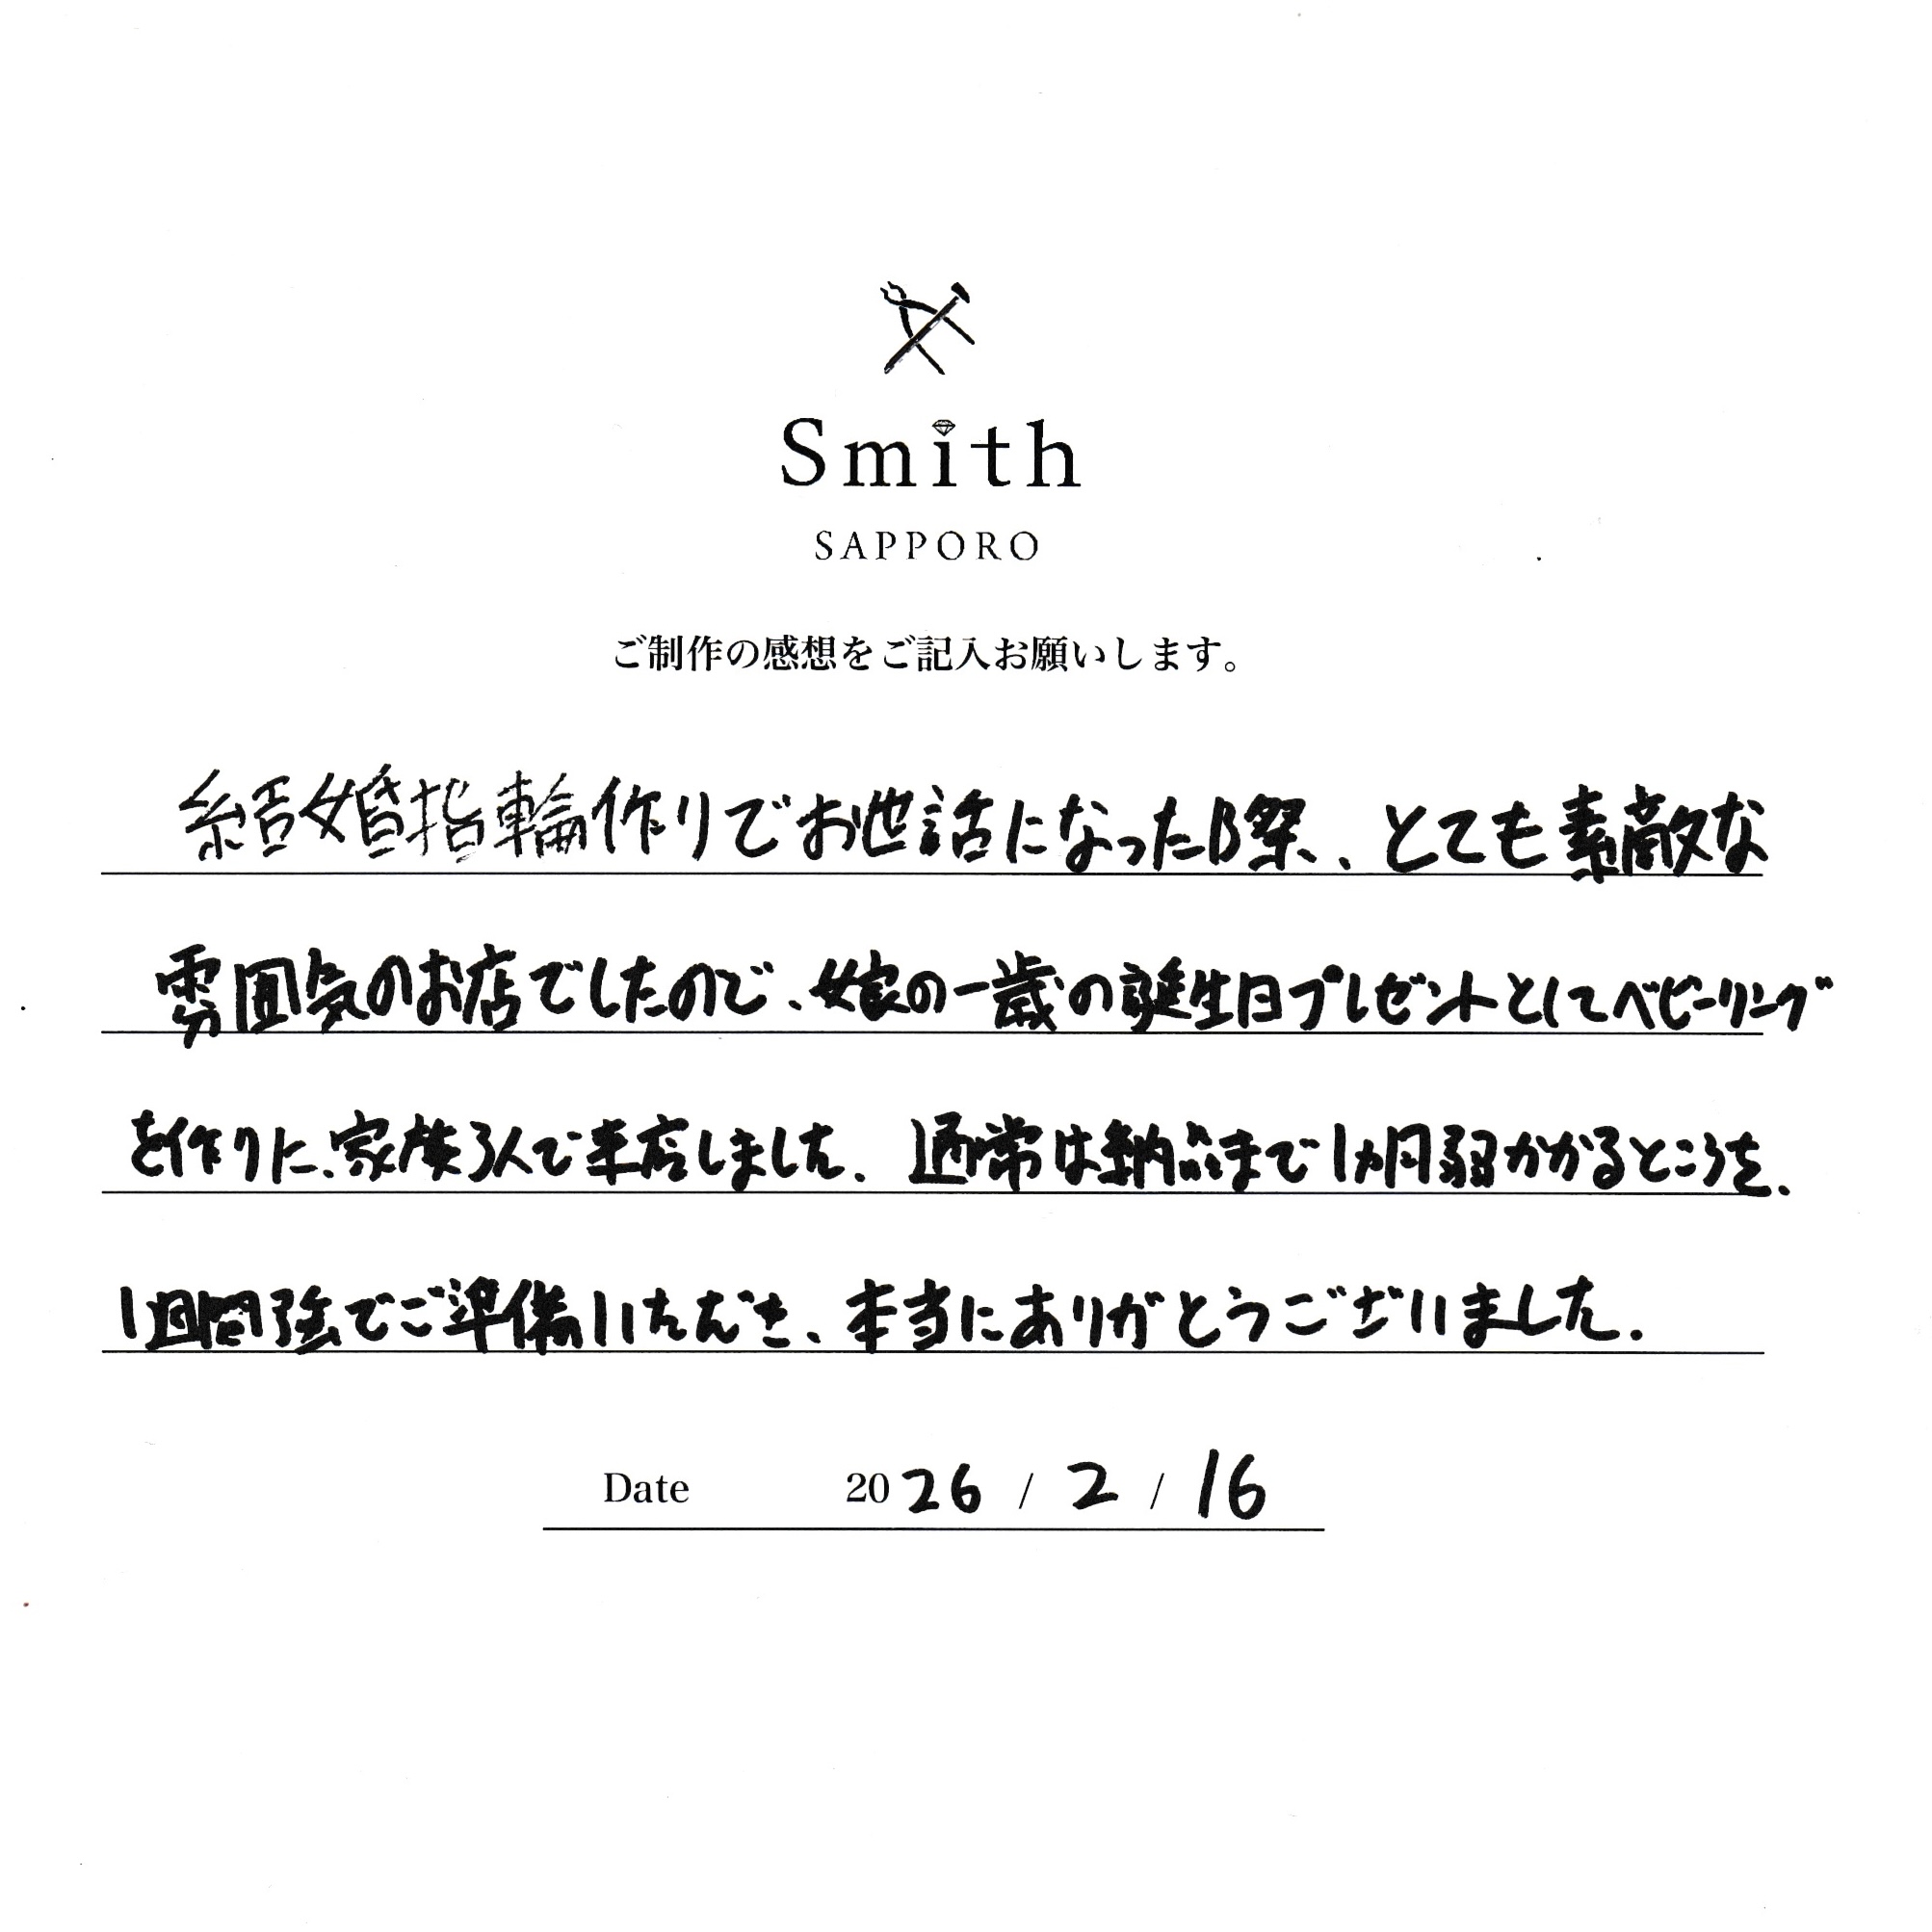 Smith
SAPPORO
ご制作の感想をご記入お願いします。
結婚指輪作りでお世話になった際、とても素敵な
雰囲気のお店でしたので、娘の一歳の誕生日プレゼントとしてベビーリング
を作りに、家族3人で来店しました。通常は納品まで1ヵ月弱かかるところを、
1週間強でご準備いただき、本当にありがとうございました。
Date 2026 / 2 / 16